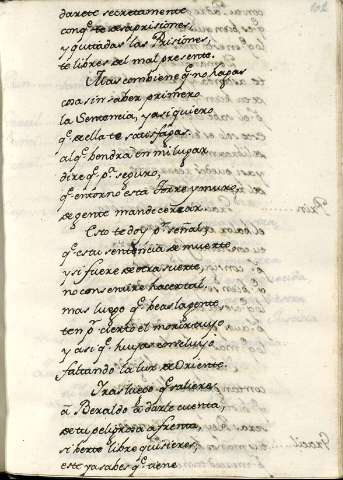 102
darete secretamente
conq̃. te desaprisiones,
y quitadas las Prisiones,
te libres del mal presente.
Mas combiene q̃. no hagas
cosa sin saber primero
la Sentencia, y asi quiero
q̃. de ella te satisfagas.
al q̃. bendra en mi lugar
dire q̃. pr. seguro,
q̃. en torno esta Torre y muro
de gente mande cercar.
Prin
Esto te doy pr. señal;
q̃. es tu sentencia de muerte,
y si fuere de otra suerte,
no consentire hacer tal,
mas luego q̃. beas la gente
ten pr. cierto el morir tuyo
y asi q̃. huyas concluyo
faltando la luz de Oriente.
Tras luego q̃. salieres
á Beraldo á darle cuenta,
de tu peligro á frenta,
si berte libre quisieres,
este ya sabes q̃. tiene
Gracil